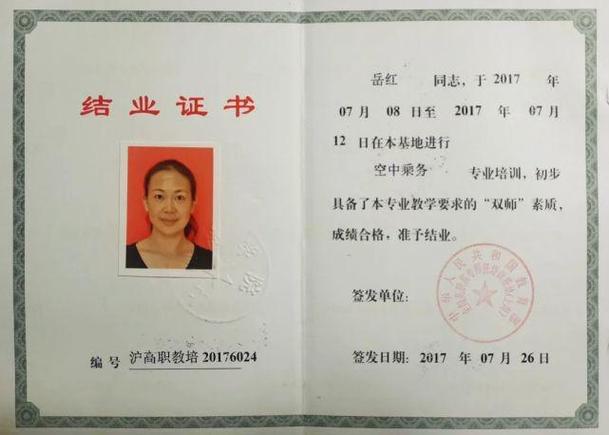 结业证书
编号 沪高职教培 20176024
岳红 同志，于 2017 年
07月 08日至 2017 年 07月
12 日在本基地进行
空中乘务 专业培训，初步
具备了本专业教学要求的“双师”素质，
成绩合格，准予结业。
签发单位：
中华人民共和国教育部
签发日期：2017 年 07月 26日